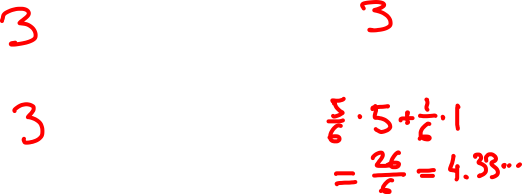 3 3
3 5/6 · 5 + 1/6 · 1
= 26/6 = 4.33...